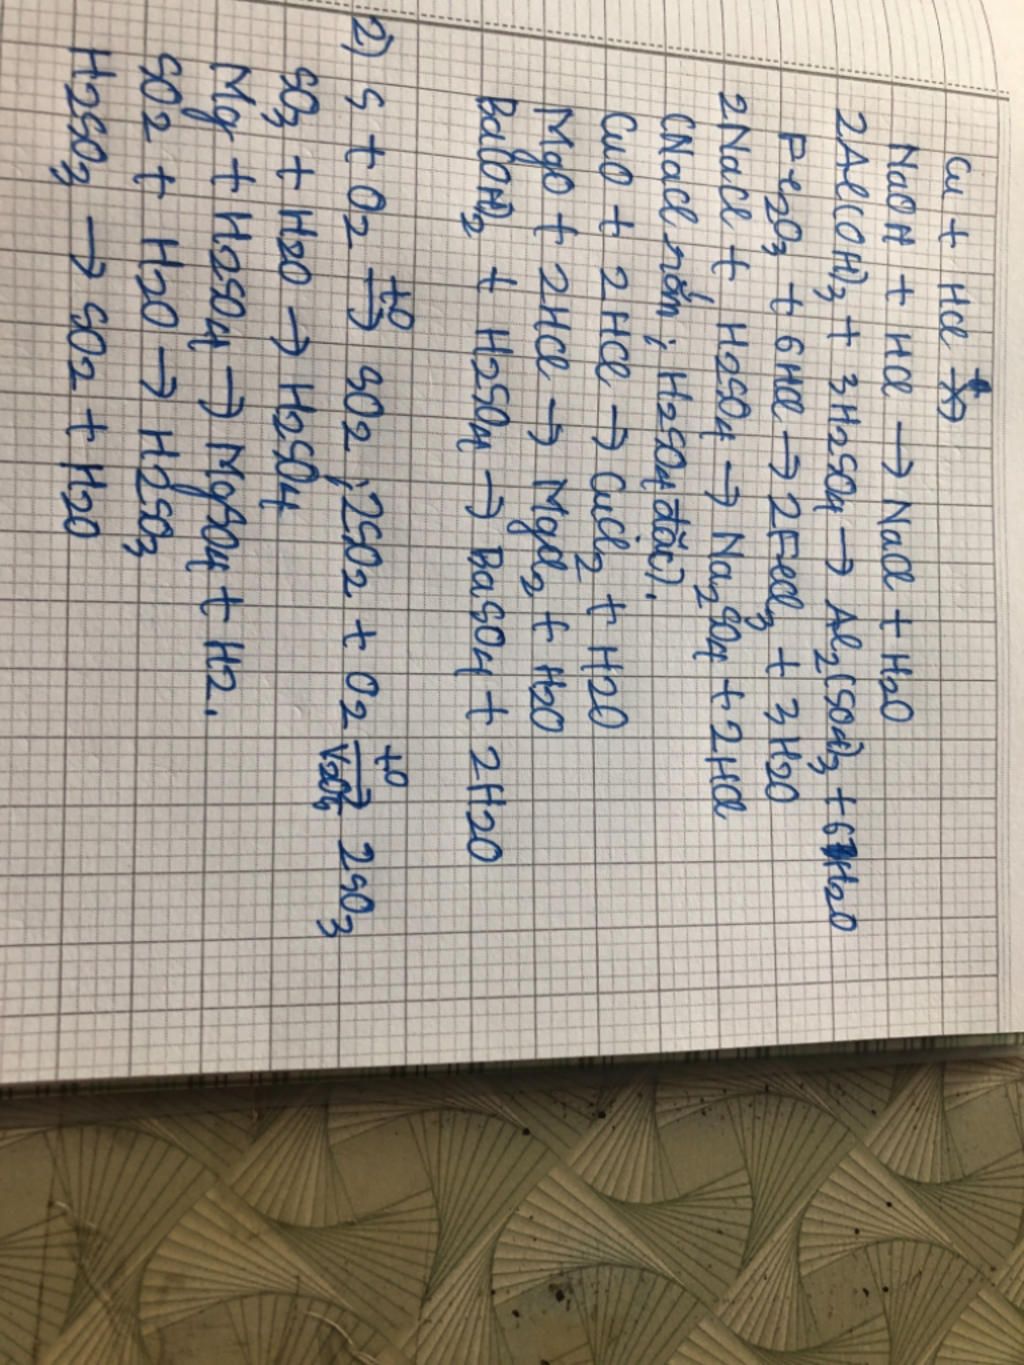 Cu + HCl ↛
NaOH + HCl → NaCl + H2O
2Al(OH)3 + 3H2SO4 → Al2(SO4)3 + 6H2O
Fe2O3 + 6HCl → 2FeCl3 + 3H2O
2NaCl + H2SO4 → Na2SO4 + 2HCl
(NaCl rắn ; H2SO4 đặc).
CuO + 2HCl → CuCl2 + H2O
MgO + 2HCl → MgCl2 + H2O
Ba(OH)2 + H2SO4 → BaSO4 + 2H2O
2) S + O2 →(to) SO2 ; 2SO2 + O2 →(to, V2O5) 2SO3
SO3 + H2O → H2SO4
Mg + H2SO4 → MgSO4 + H2.
SO2 + H2O → H2SO3
H2SO3 → SO2 + H2O